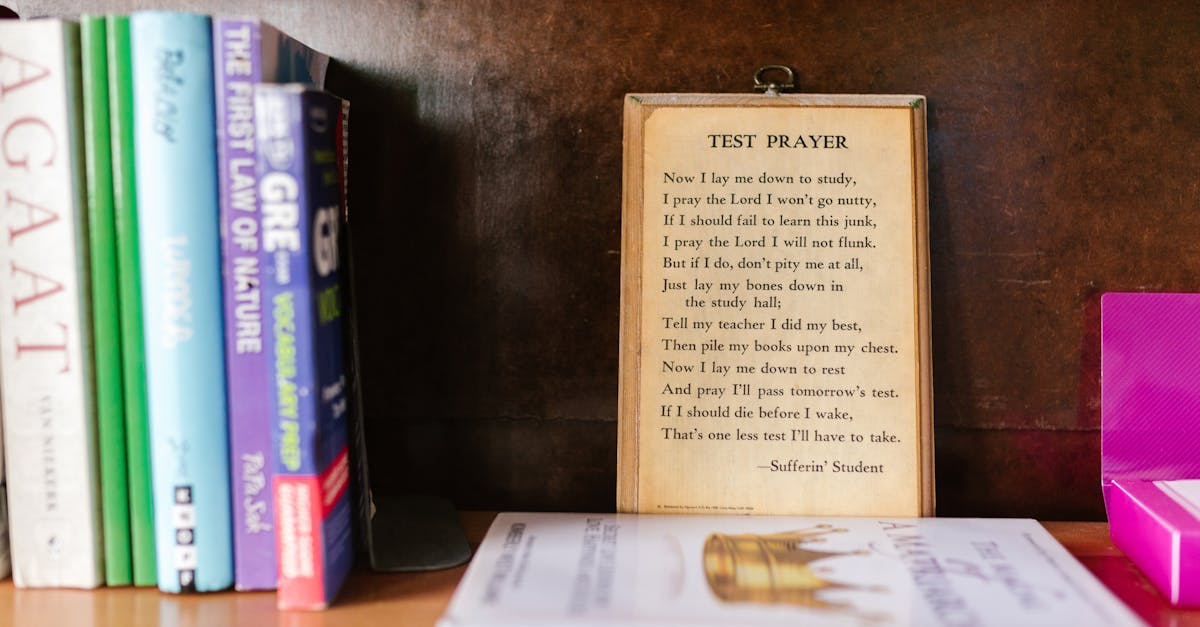 AGAAT
VAN NIEKERK
THE FIRST LAW OF NATURE
GRE
VOCABULARY PREP
TEST PRAYER
Now I lay me down to study,
I pray the Lord I won't go nutty,
If I should fail to learn this junk,
I pray the Lord I will not flunk.
But if I do, don't pity me at all,
Just lay my bones down in
the study hall;
Tell my teacher I did my best,
Then pile my books upon my chest.
Now I lay me down to rest
And pray I'll pass tomorrow's test.
If I should die before I wake,
That's one less test I'll have to take.
—Sufferin' Student